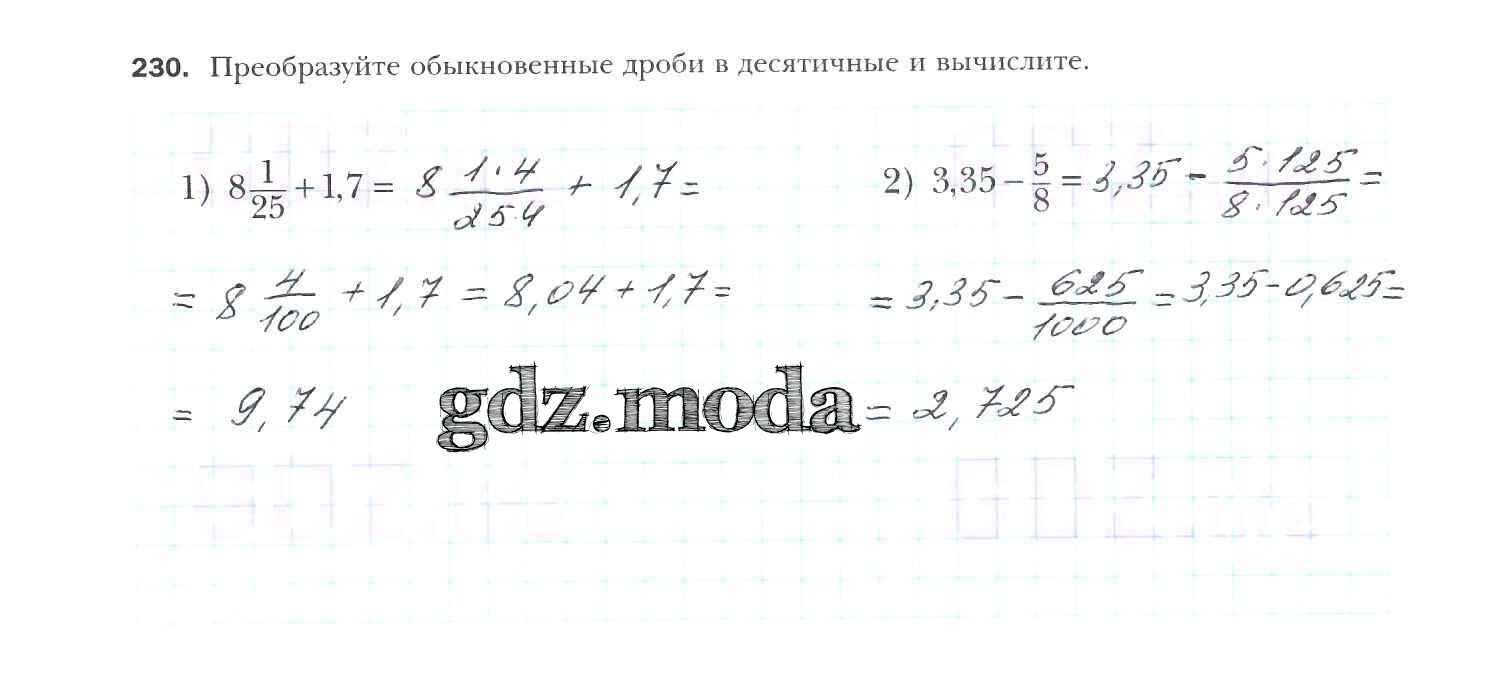 230. Преобразуйте обыкновенные дроби в десятичные и вычислите.
1) 8 1/25 + 1,7 = 8 1·4/25·4 + 1,7 =
= 8 4/100 + 1,7 = 8,04 + 1,7 =
= 9,74
2) 3,35 − 5/8 = 3,35 − 5·125/8·125 =
= 3,35 − 625/1000 = 3,35 − 0,625 =
= 2,725
gdz.moda